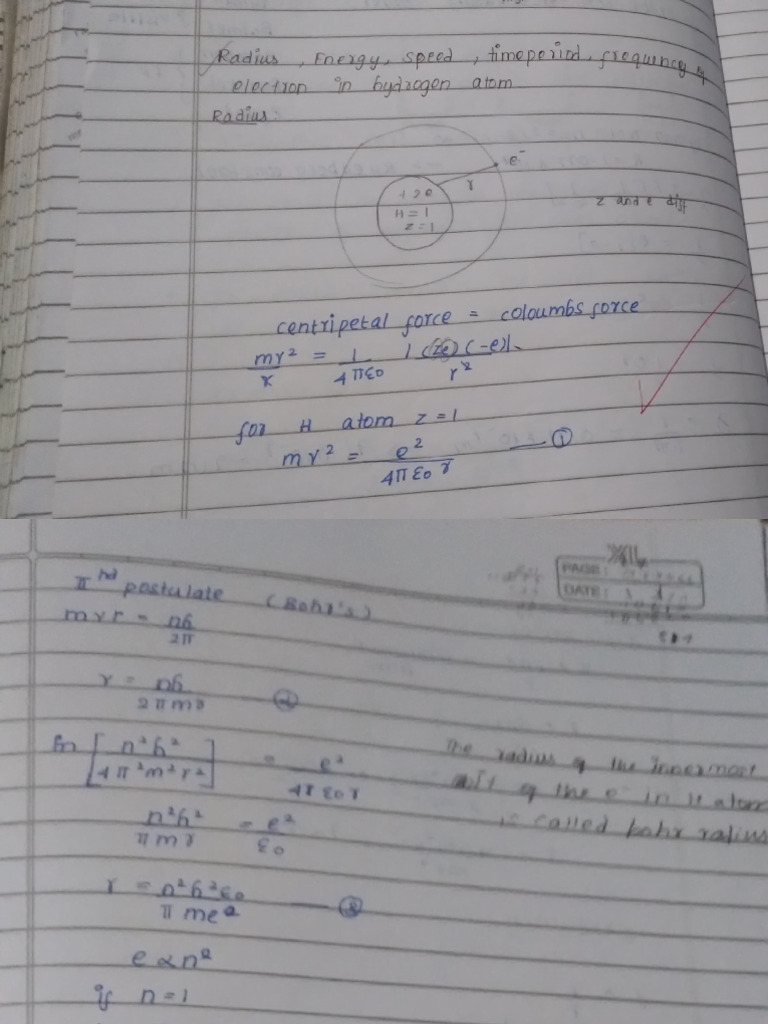 Radius, Energy, speed, timeperiod, frequency of
electron in hydrogen atom
Radius:
e⁻
r
+ze
H = 1
z = 1
z and e diff
centripetal force = coloumbs force
mv²/r = 1/4πε0 |(ze)(-e)|/r²
for H atom z = 1
mv² = e²/4πε0r — ①
XII
PAGE:
DATE:
IInd postulate (Bohr's)
mvr = nh/2π
v = nh/2πmr — ②
m[n²h²/4π²m²r²] = e²/4πε0r
n²h²/πmr = e²/ε0
The radius of the innermost
of the e⁻ in H atom
is called bohr radius
r = n²h²ε0/πme² — ③
e ∝ n²
if n = 1